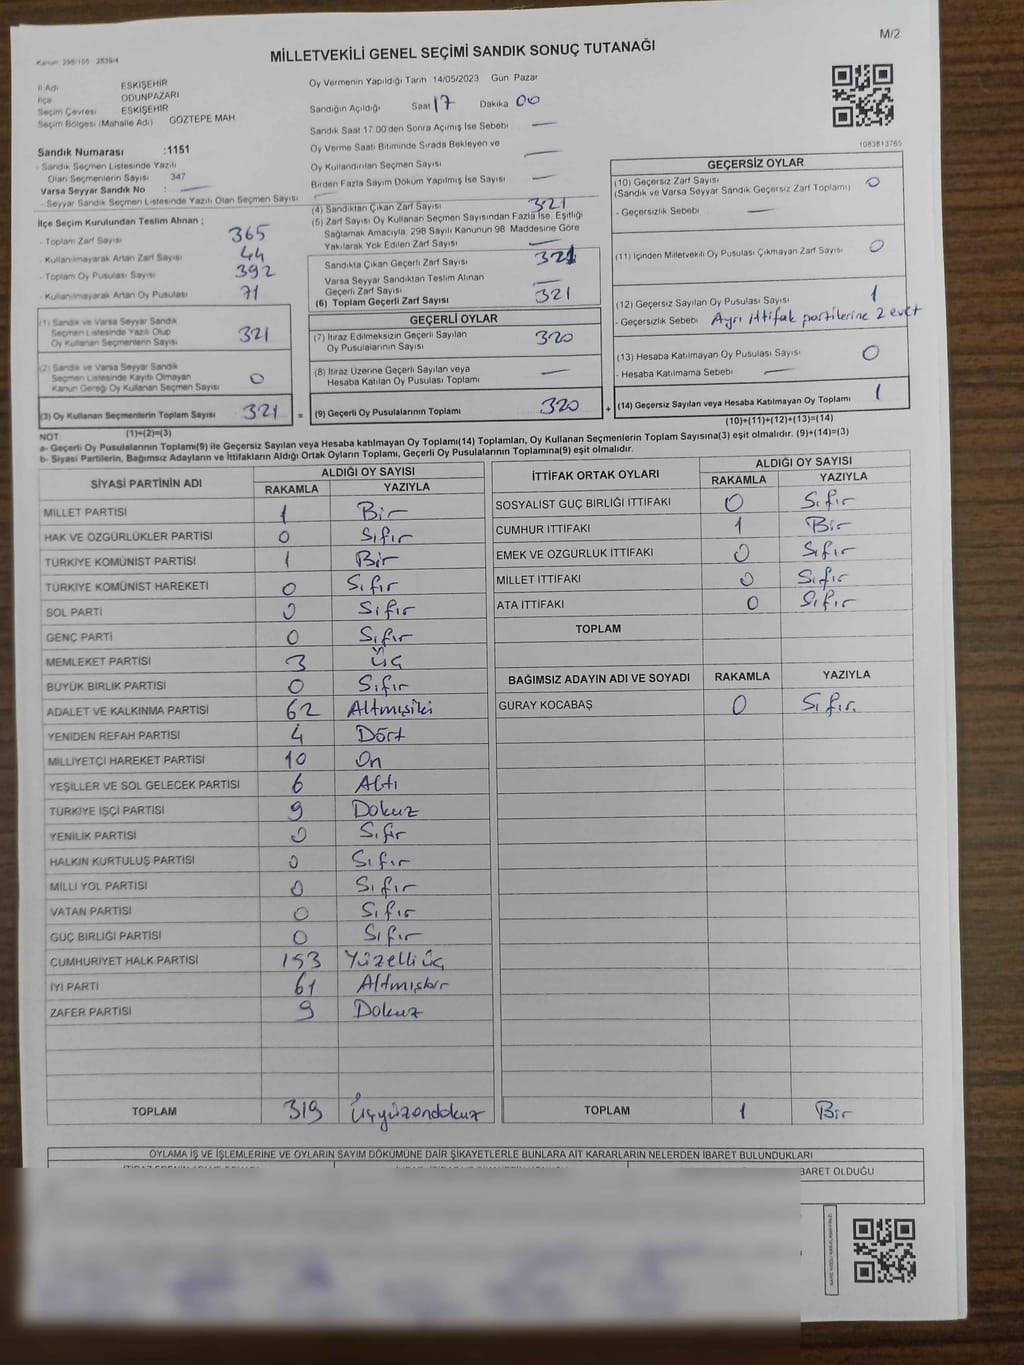 M/2
Kanun: 298/105 - 2839/4
MİLLETVEKİLİ GENEL SEÇİMİ SANDIK SONUÇ TUTANAĞI
İl Adı ESKİŞEHİR
İlçe ODUNPAZARI
Seçim Çevresi ESKİŞEHİR
Seçim Bölgesi (Mahalle Adı) GÖZTEPE MAH
Sandık Numarası :1151
- Sandık Seçmen Listesinde Yazılı
Olan Seçmenlerin Sayısı 347
Varsa Seyyar Sandık No : —
- Seyyar Sandık Seçmen Listesinde Yazılı Olan Seçmen Sayısı —
İlçe Seçim Kurulundan Teslim Alınan ;
- Toplam Zarf Sayısı 365
- Kullanılmayarak Artan Zarf Sayısı 44
- Toplam Oy Pusulası Sayısı 392
- Kullanılmayarak Artan Oy Pusulası 71
(1) Sandık ve Varsa Seyyar Sandık
Seçmen Listesinde Yazılı Olup
Oy Kullanan Seçmenlerin Sayısı 321
(2) Sandık ve Varsa Seyyar Sandık
Seçmen Listesinde Kayıtlı Olmayan
Kanun Gereği Oy Kullanan Seçmen Sayısı 0
(3) Oy Kullanan Seçmenlerin Toplam Sayısı 321 =
(1)+(2)=(3)
Oy Vermenin Yapıldığı Tarih 14/05/2023 Gün Pazar
Sandığın Açıldığı Saat 17 Dakika 00
Sandık Saat 17.00'den Sonra Açımış İse Sebebi —
Oy Verme Saati Bitiminde Sırada Bekleyen ve
Oy Kullandırılan Seçmen Sayısı —
Birden Fazla Sayım Döküm Yapılmış İse Sayısı —
(4) Sandıktan Çıkan Zarf Sayısı 321
(5) Zarf Sayısı Oy Kullanan Seçmen Sayısından Fazla İse, Eşitliği
Sağlamak Amacıyla, 298 Sayılı Kanunun 98. Maddesine Göre
Yakılarak Yok Edilen Zarf Sayısı —
Sandıkta Çıkan Geçerli Zarf Sayısı 321
Varsa Seyyar Sandıktan Teslim Alınan
Geçerli Zarf Sayısı —
(6) Toplam Geçerli Zarf Sayısı 321
GEÇERLİ OYLAR
(7) İtiraz Edilmeksizin Geçerli Sayılan
Oy Pusulalarının Sayısı 320
(8) İtiraz Üzerine Geçerli Sayılan veya
Hesaba Katılan Oy Pusulası Toplamı —
(9) Geçerli Oy Pusulalarının Toplamı 320 +
1083813765
GEÇERSİZ OYLAR
(10) Geçersiz Zarf Sayısı 0
(Sandık ve Varsa Seyyar Sandık Geçersiz Zarf Toplamı)
- Geçersizlik Sebebi —
(11) İçinden Milletvekili Oy Pusulası Çıkmayan Zarf Sayısı 0
(12) Geçersiz Sayılan Oy Pusulası Sayısı 1
- Geçersizlik Sebebi Ayrı ittifak partilerine 2 evet
(13) Hesaba Katılmayan Oy Pusulası Sayısı 0
- Hesaba Katılmama Sebebi —
(14) Geçersiz Sayılan veya Hesaba Katılmayan Oy Toplamı 1
(10)+(11)+(12)+(13)=(14)
NOT:
a- Geçerli Oy Pusulalarının Toplamı(9) ile Geçersiz Sayılan veya Hesaba katılmayan Oy Toplamı(14) Toplamları, Oy Kullanan Seçmenlerin Toplam Sayısına(3) eşit olmalıdır. (9)+(14)=(3)
b- Siyasi Partilerin, Bağımsız Adayların ve İttifakların Aldığı Ortak Oyların Toplamı, Geçerli Oy Pusulalarının Toplamına(9) eşit olmalıdır.
SİYASİ PARTİNİN ADI ALDIĞI OY SAYISI
RAKAMLA YAZIYLA
MİLLET PARTİSİ 1 Bir
HAK VE ÖZGÜRLÜKLER PARTİSİ 0 Sıfır
TÜRKİYE KOMÜNİST PARTİSİ 1 Bir
TÜRKİYE KOMÜNİST HAREKETİ 0 Sıfır
SOL PARTİ 0 Sıfır
GENÇ PARTİ 0 Sıfır
MEMLEKET PARTİSİ 3 Üç
BÜYÜK BİRLİK PARTİSİ 0 Sıfır
ADALET VE KALKINMA PARTİSİ 62 Altmışiki
YENİDEN REFAH PARTİSİ 4 Dört
MİLLİYETÇİ HAREKET PARTİSİ 10 On
YEŞİLLER VE SOL GELECEK PARTİSİ 6 Altı
TÜRKİYE İŞÇİ PARTİSİ 9 Dokuz
YENİLİK PARTİSİ 0 Sıfır
HALKIN KURTULUŞ PARTİSİ 0 Sıfır
MİLLİ YOL PARTİSİ 0 Sıfır
VATAN PARTİSİ 0 Sıfır
GÜÇ BİRLİĞİ PARTİSİ 0 Sıfır
CUMHURİYET HALK PARTİSİ 153 Yüzelliüç
İYİ PARTİ 61 Altmışbir
ZAFER PARTİSİ 9 Dokuz
TOPLAM 319 Üçyüzondokuz
İTTİFAK ORTAK OYLARI ALDIĞI OY SAYISI
RAKAMLA YAZIYLA
SOSYALİST GÜÇ BİRLİĞİ İTTİFAKI 0 Sıfır
CUMHUR İTTİFAKI 1 Bir
EMEK VE ÖZGÜRLÜK İTTİFAKI 0 Sıfır
MİLLET İTTİFAKI 0 Sıfır
ATA İTTİFAKI 0 Sıfır
TOPLAM
BAĞIMSIZ ADAYIN ADI VE SOYADI RAKAMLA YAZIYLA
GÜRAY KOCABAŞ 0 Sıfır.
TOPLAM 1 Bir
OYLAMA İŞ VE İŞLEMLERİNE VE OYLARIN SAYIM DÖKÜMÜNE DAİR ŞİKAYETLERLE BUNLARA AİT KARARLARIN NELERDEN İBARET BULUNDUKLARI
BARET OLDUĞU